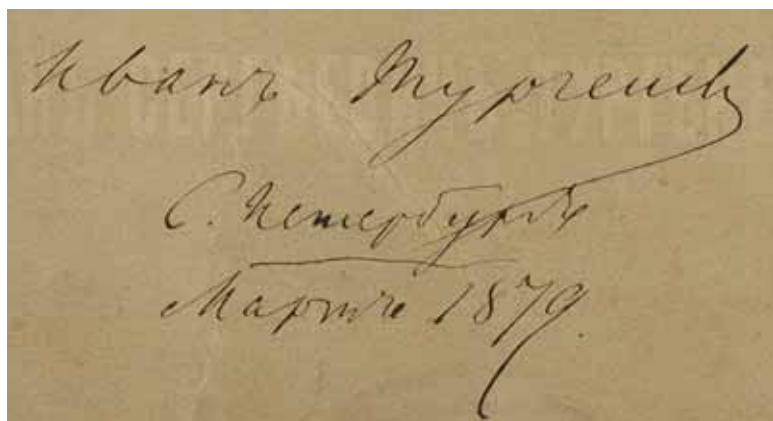 Иванъ Тургеневъ
С. Петербургъ
Мартъ 1879.